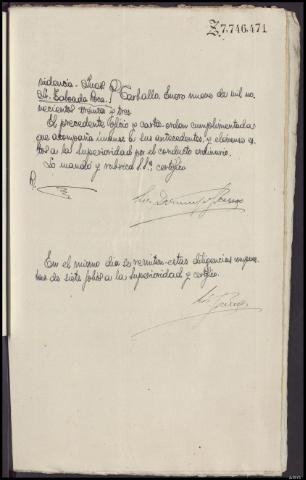 Z.7.746.471
videncia - Juez
Sr. Calzada Roca.
Carballo, Enero nueve de mil no-
vecientos treinta y tres
El precedente oficio y carta-orden cumplimentada
que acompaña únanse a sus antecedentes, y elévense es-
tos a la Superioridad por el conducto ordinario.
Lo mandó y rubrica S.Sª. certifico
En el mismo día se remiten estas diligencias
de siete folios a la Superioridad y certifico